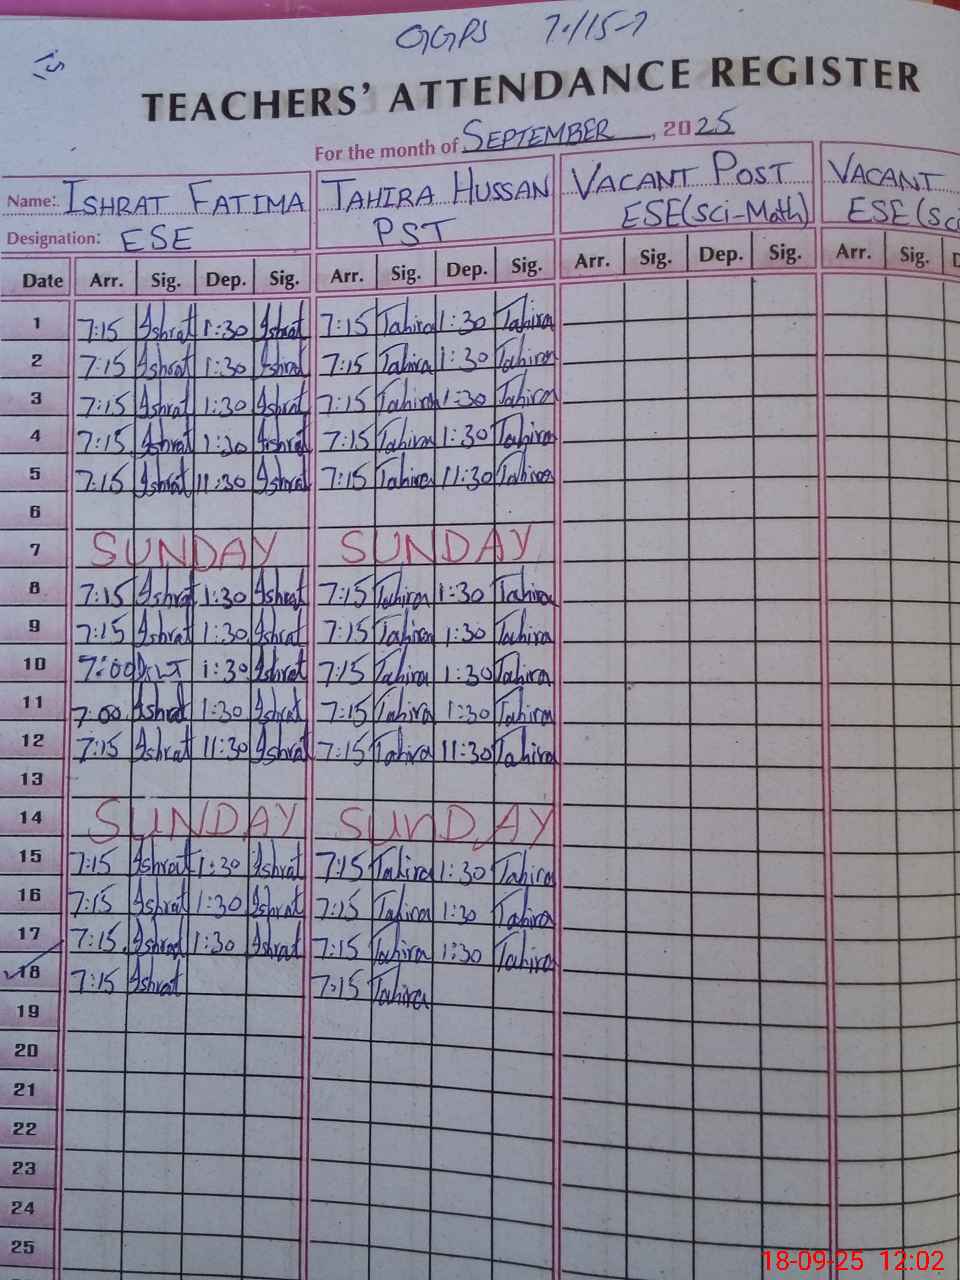 GGPS 7-/15-7
TEACHERS' ATTENDANCE REGISTER
For the month of SEPTEMBER, 2025
Name: ISHRAT FATIMA TAHIRA HUSSAN VACANT POST VACANT
Designation: ESE PST ESE(Sci-Math) ESE (Sc
Date Arr. Sig. Dep. Sig. Arr. Sig. Dep. Sig. Arr. Sig. Dep. Sig. Arr. Sig. D
1 7:15 Ishrat 1:30 Ishrat 7:15 Tahira 1:30 Tahira
2 7:15 Ishrat 1:30 Ishrat 7:15 Tahira 1:30 Tahira
3 7:15 Ishrat 1:30 Ishrat 7:15 Tahira 1:30 Tahira
4 7:15 Ishrat 1:30 Ishrat 7:15 Tahira 1:30 Tahira
5 7:15 Ishrat 11:30 Ishrat 7:15 Tahira 11:30 Tahira
6
7 SUNDAY SUNDAY
8 7:15 Ishrat 1:30 Ishrat 7:15 Tahira 1:30 Tahira
9 7:15 Ishrat 1:30 Ishrat 7:15 Tahira 1:30 Tahira
10 7:00 1:30 Ishrat 7:15 Tahira 1:30 Tahira
11 7:00 Ishrat 1:30 Ishrat 7:15 Tahira 1:30 Tahira
12 7:15 Ishrat 11:30 Ishrat 7:15 Tahira 11:30 Tahira
13
14 SUNDAY SUNDAY
15 7:15 Ishrat 1:30 Ishrat 7:15 Tahira 1:30 Tahira
16 7:15 Ishrat 1:30 Ishrat 7:15 Tahira 1:30 Tahira
17 7:15 Ishrat 1:30 Ishrat 7:15 Tahira 1:30 Tahira
18 7:15 Ishrat 7:15 Tahira
19
20
21
22
23
24
25
18-09-25 12:02